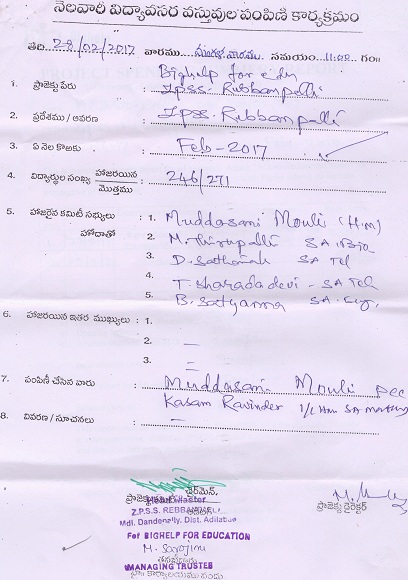 నెలవారీ విద్యావసర వస్తువుల పంపిణి కార్యక్రమం
తేది 28/02/2017 వారము మంగళవారము సమయం 11:00 గం॥
Bighelp for edu
1. ప్రాజెక్టు పేరు : ZPSS. Rebbanpalli
2. ప్రదేశము / ఆవరణ : ZPSS. Rebbanpalli
3. ఏ నెల కొఱకు : Feb-2017
4. విద్యార్థుల సంఖ్య హాజరయిన / మొత్తము : 246/271
5. హాజరైన కమిటీ సభ్యులు హోదాతో : 1. Muddasani Mouli (H.M)
2. M. Thirupathi SA Bio
3. D. Sathaiah SA Tel
4. T. Sharada devi - SA Tel
5. B. Satyanna SA.
6. హాజరయిన ఇతర ముఖ్యులు : 1.
2. —
3. =
7. పంపిణీ చేసిన వారు : Muddasani. Mouli
Kasam Ravinder I/c HM SA Maths
8. వివరణ / సూచనలు : —
ప్రాజెక్టు కమిటీ ఛైర్మెన్,
Z.P.S.S. REBBANPALLI
Mdl. Dandepally, Dist. Adilabad
For BIGHELP FOR EDUCATION
M. Sarojini
MANAGING TRUSTEE
ప్రాజెక్టు డైరెక్టర్